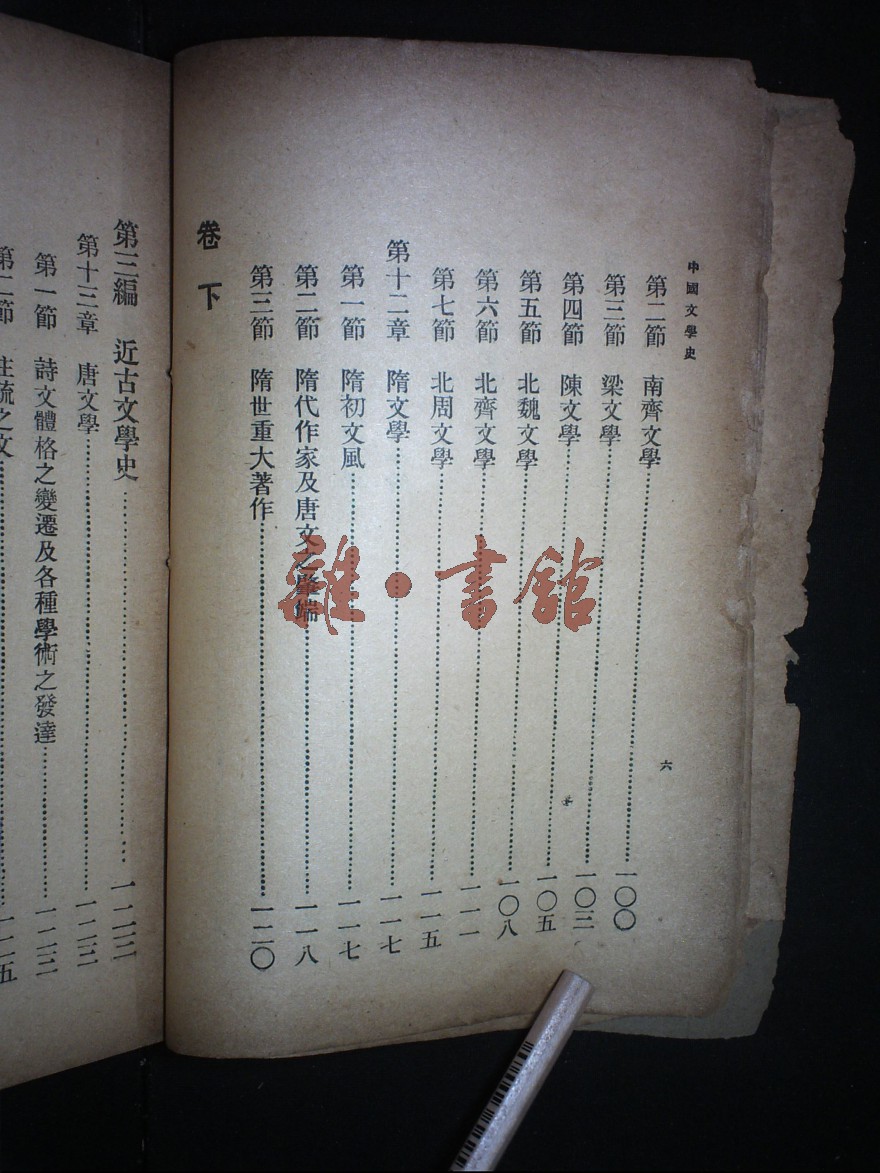 中國文學史
六
第二節 南齊文學……一〇〇
第三節 梁文學……一〇三
第四節 陳文學……一〇五
第五節 北魏文學……一〇八
第六節 北齊文學……一一一
第七節 北周文學……一一五
第十二章 隋文學……一一七
第一節 隋初文風……一一七
第二節 隋代作家及唐文之肇端……一一八
第三節 隋世重大著作……一二〇
卷下
第三編 近古文學史……一二三
第十三章 唐文學……一二三
第一節 詩文體格之變遷及各種學術之發達……一二三
第二節 疏之文……一二五
雜·書館